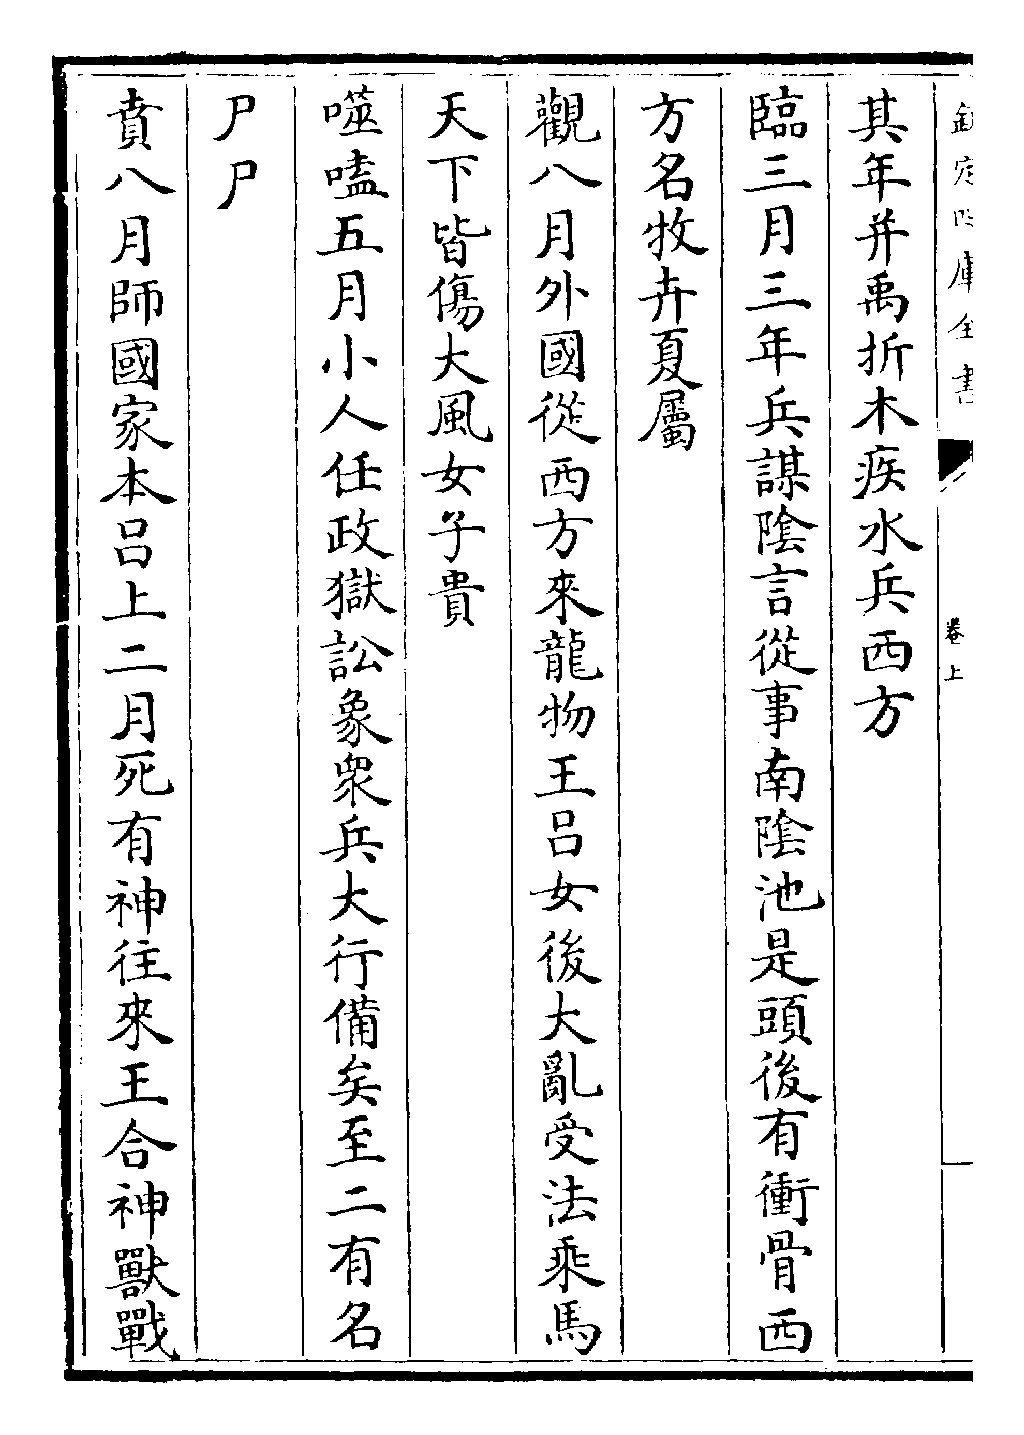 欽定四庫全書
卷上
其年并禹折木疾水兵西方
臨三月三年兵謀陰言從事南陰池是頭後有衝骨西
方名牧卉夏屬
觀八月外國從西方來龍物王呂女後大亂受法乘馬
天下皆傷大風女子貴
噬嗑五月小人任政獄訟象衆兵大行備矣至二有名
尸尸
賁八月師國家本呂上二月死有神往來王合神獸戰